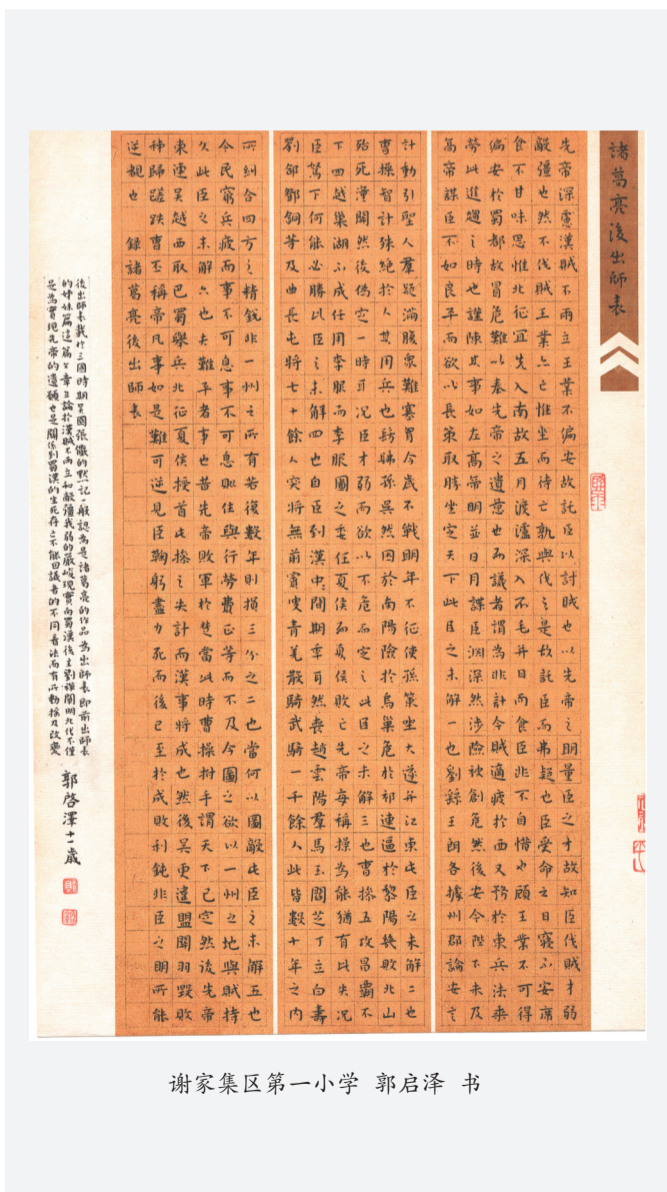 諸葛亮後出師表
先帝深慮漢賊不兩立王業不偏安故託臣以討賊也以先帝之明量臣之才故知臣伐賊才弱
敵彊也然不伐賊王業亦亡惟坐而待亡孰與伐之是故託臣而弗疑也臣受命之日寢不安席
食不甘味思惟北征宜先入南故五月渡瀘深入不毛并日而食臣非不自惜也顧王業不可得
偏安於蜀都故冒危難以奉先帝之遺意也而議者謂為非計今賊適疲於西又務於東兵法乘
勞此進趨之時也謹陳其事如左高帝明並日月謀臣淵深然涉險被創危然後安今陛下未及
高帝謀臣不如良平而欲以長策取勝坐定天下此臣之未解一也劉繇王朗各據州郡論安言
計動引聖人羣疑滿腹眾難塞胷今歲不戰明年不征使孫策坐大遂并江東此臣之未解二也
曹操智計殊絕於人其用兵也髣髴孫吳然困於南陽險於烏巢危於祁連逼於黎陽幾敗北山
殆死潼關然後偽定一時耳況臣才弱而欲以不危而定之此臣之未解三也曹操五攻昌霸不
下四越巢湖不成任用李服而李服圖之委任夏侯而夏侯敗亡先帝每稱操為能猶有此失況
臣駑下何能必勝此臣之未解四也自臣到漢中間期年耳然喪趙雲陽羣馬玉閻芝丁立白壽
劉郃鄧銅等及曲長屯將七十餘人突將無前賨叟青羌散騎武騎一千餘人此皆數十年之內
所糾合四方之精銳非一州之所有若復數年則損三分之二也當何以圖敵此臣之未解五也
今民窮兵疲而事不可息事不可息則住與行勞費正等而不及今圖之欲以一州之地與賊持
久此臣之未解六也夫難平者事也昔先帝敗軍於楚當此時曹操拊手謂天下已定然後先帝
東連吳越西取巴蜀舉兵北征夏侯授首此操之失計而漢事將成也然後吳更違盟關羽毀敗
秭歸蹉跌曹丕稱帝凡事如是難可逆見臣鞠躬盡力死而後已至於成敗利鈍非臣之明所能
逆覩也 錄諸葛亮後出師表
後出師表載於三國時期吳國張儼的默記一般認為是諸葛亮的作品為出師表即前出師表
的姊妹篇這篇文章立論於漢賊不兩立和敵彊我弱的嚴峻現實向蜀漢後主劉禪闡明北伐不僅
是為實現先帝的遺願也是關係到蜀漢的生死存亡不能因議者的不同看法而有所動搖及改變
郭啓澤十一歲
谢家集区第一小学 郭启泽 书